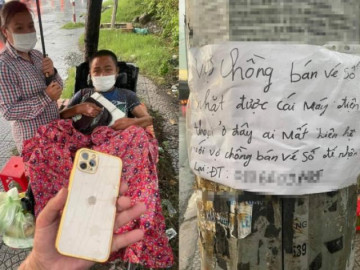 Vợ chồng bán vé số
nhặt được cái máy điện
thoại ở đây ai mất liên hệ
với vợ chồng bán vé số để nhận
lại: ĐT:
39